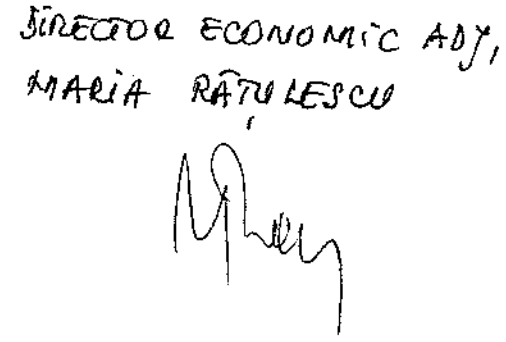 DIRECTOR ECONOMIC ADJ,
MARIA RÂȚULESCU